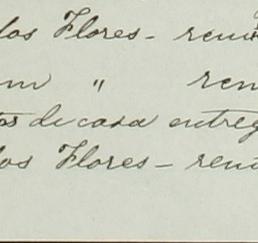 los Flores - rem
m " ren
os de casa entreg
los Flores - rem